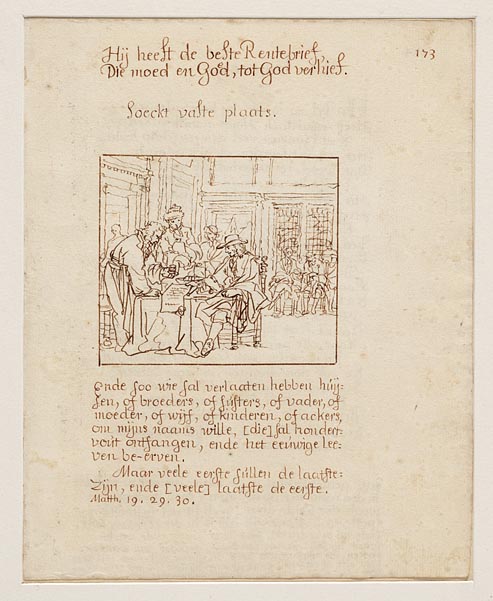 Hij heeft de beste Rentebrief,
173
Die moed en Goed, tot God verhief.
Soeckt vaste plaats.
Ende soo wie sal verlaaten hebben huij-
sen, of broeders, of susters, of vader, of
moeder, of wijf, of kinderen, of ackers,
om mijns naams wille, [die] sal hondert-
vout ontfangen, ende het eeuwige lee-
ven be-erven.
Maar veele eerste sullen de laatste
zijn, ende [veele] laatste de eerste.
Matth. 19. 29. 30.